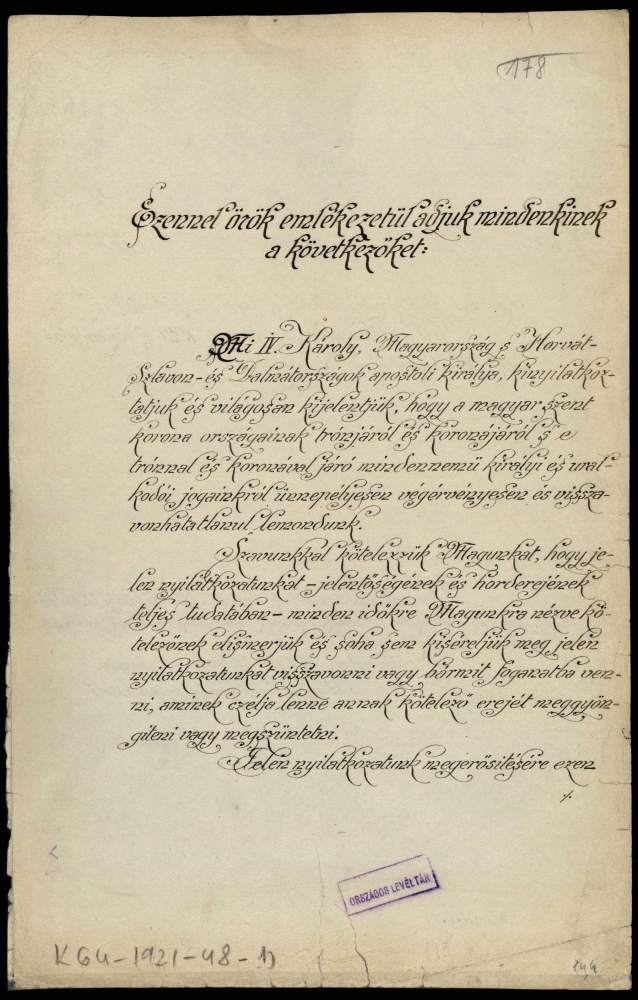 178
Ezennel örök emlékezetül adjuk mindenkinek
a következőket:
Mi IV. Károly, Magyarország s Horvát-
Szlavon- és Dalmátországok apostoli királya, kinyilatkoz-
tatjuk és világosan kijelentjük, hogy a magyar szent
korona országainak trónjáról és koronájáról s e
trónnal és koronával járó mindennemü királyi és ural-
kodói jogainkról ünnepélyesen végérvényesen és vissza-
vonhatatlanul lemondunk.
Szavunkkal kötelezzük Magunkat, hogy je-
len nyilatkozatunkat – jelentőségének és horderejének
teljes tudatában – minden időkre Magunkra nézve kö-
telezőnek elismerjük és soha sem kiséreljük meg jelen
nyilatkozatunkat visszavonni vagy bármit foganatba ven-
ni, aminek czélja lenne annak kötelező erejét meggyön-
giteni vagy megszüntetni.
Jelen nyilatkozatunk megerősitésére ezen
./.
ORSZÁGOS LEVÉLTÁR
K64-1921-48-